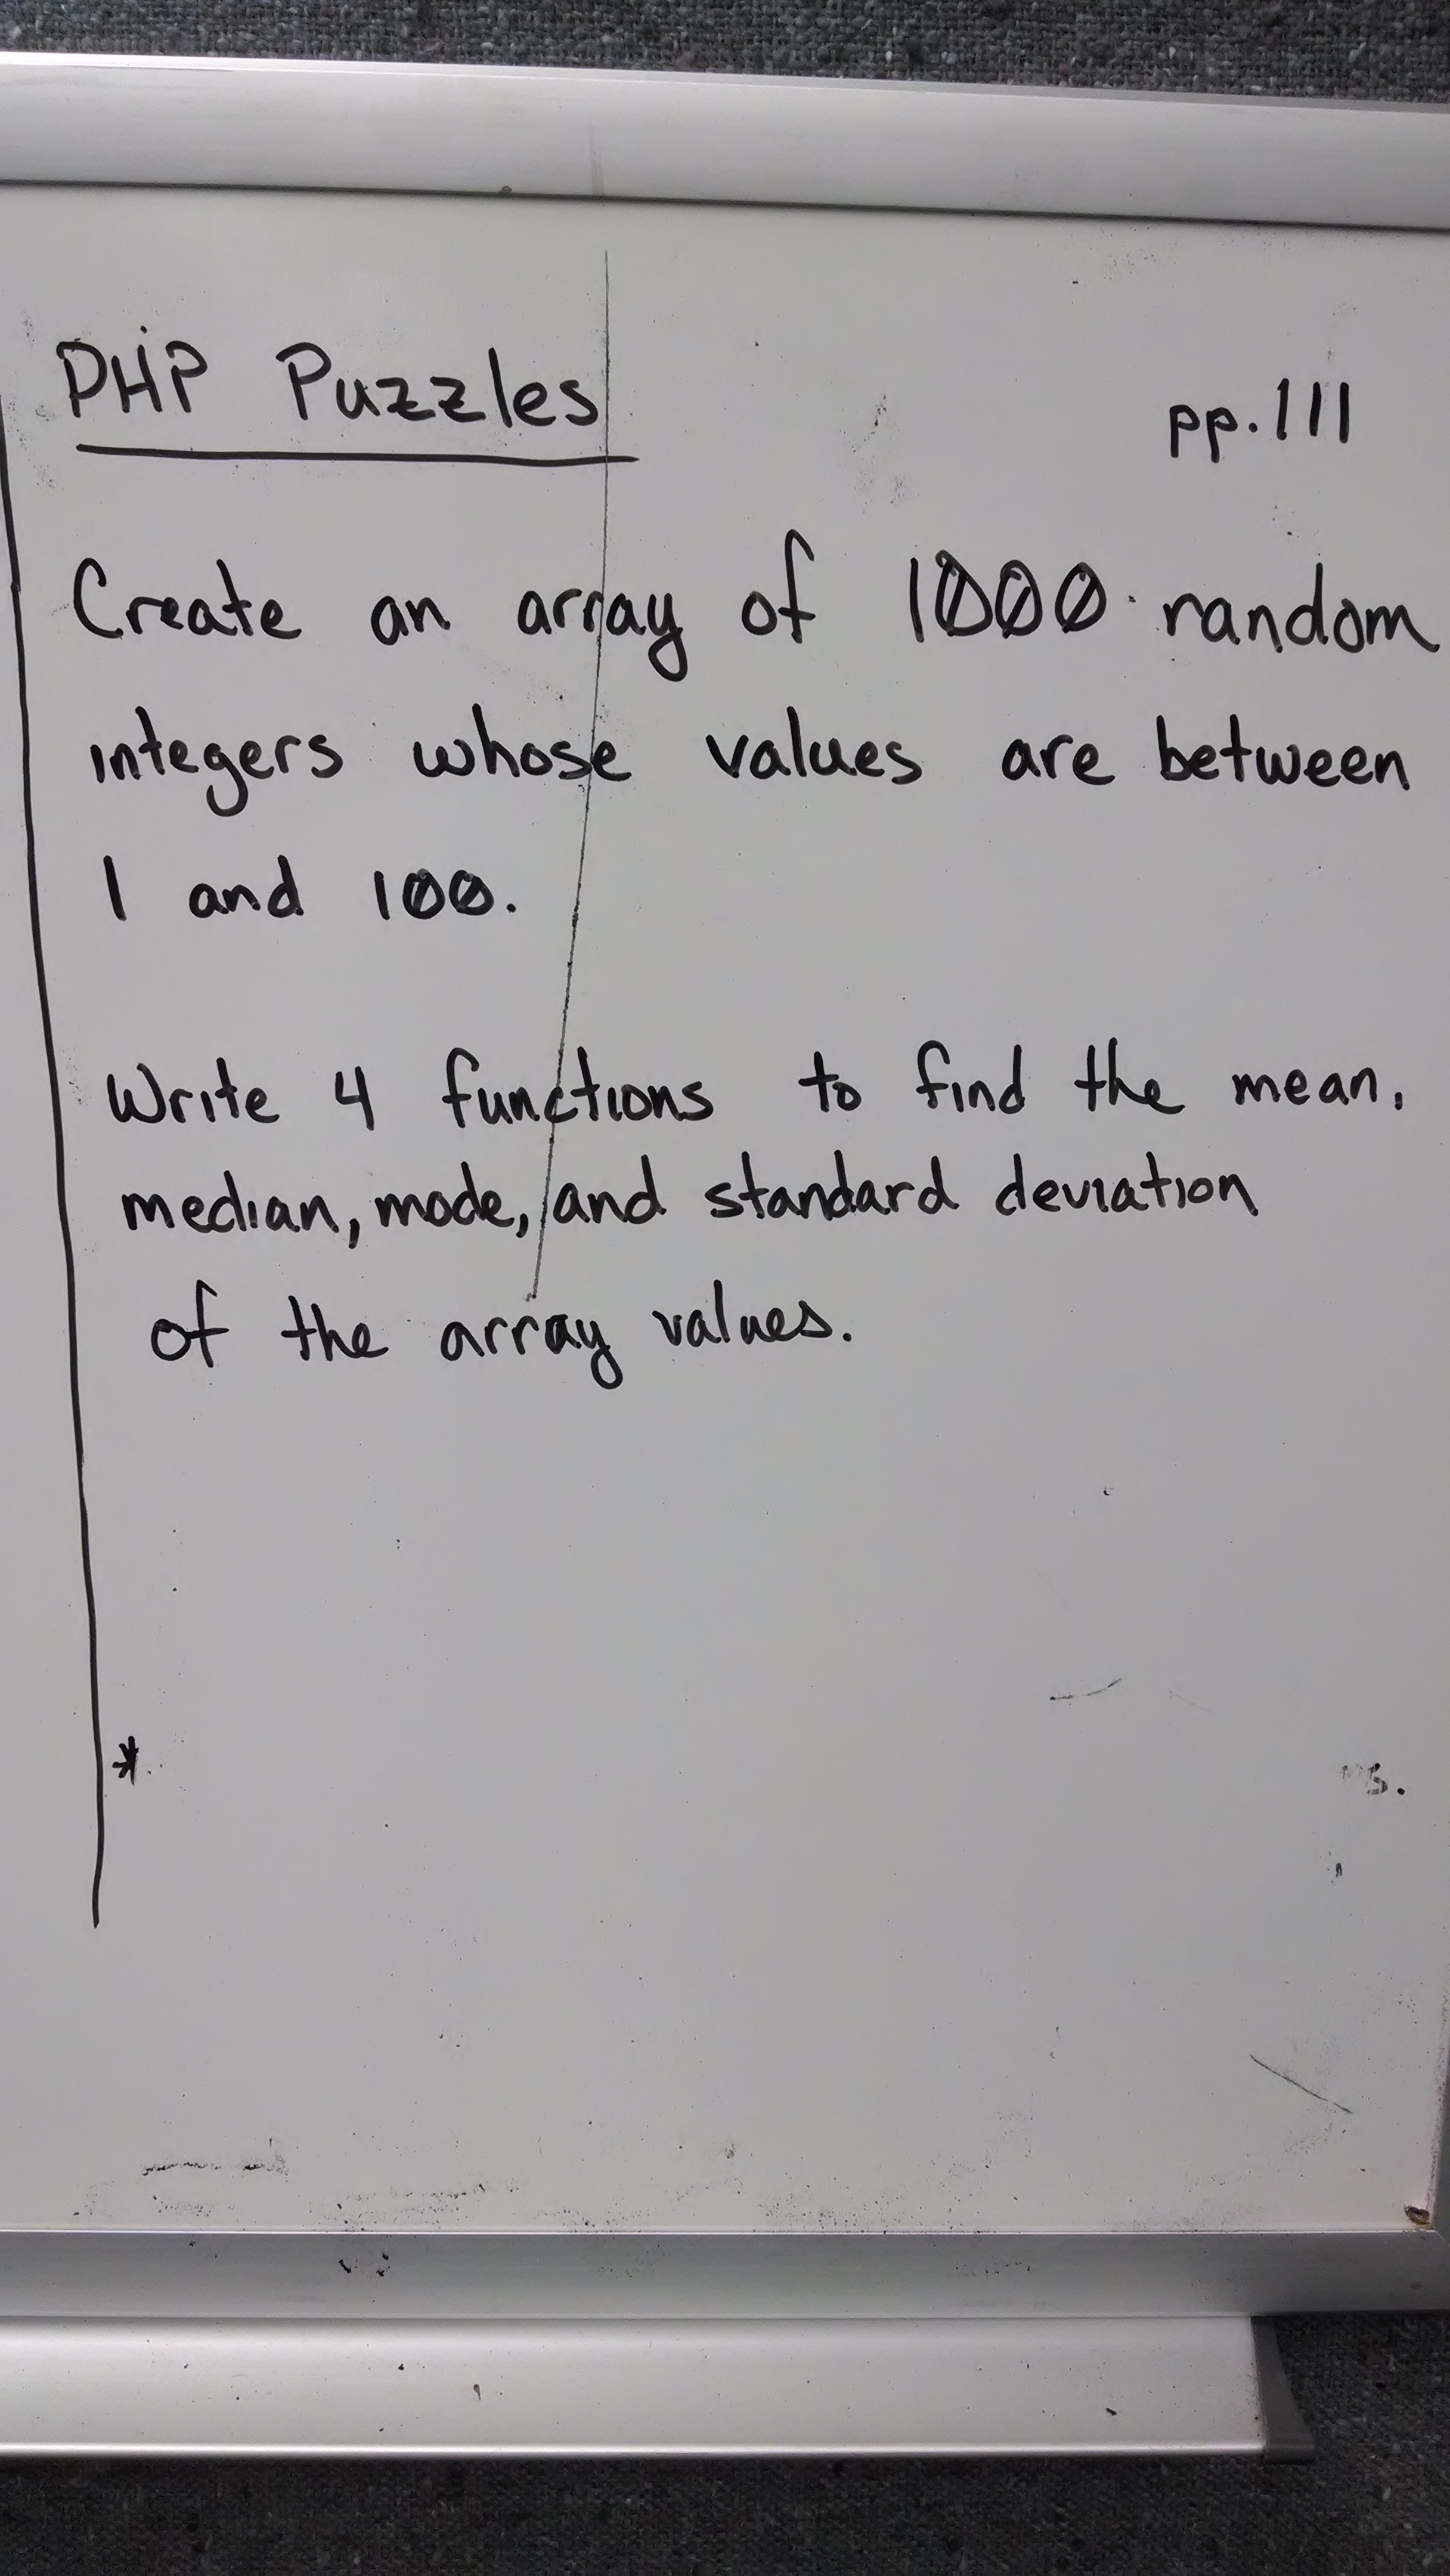 PHP Puzzles pp.111
Create an array of 1000 random
integers whose values are between
1 and 100.
Write 4 functions to find the mean,
median, mode, and standard deviation
of the array values.
*